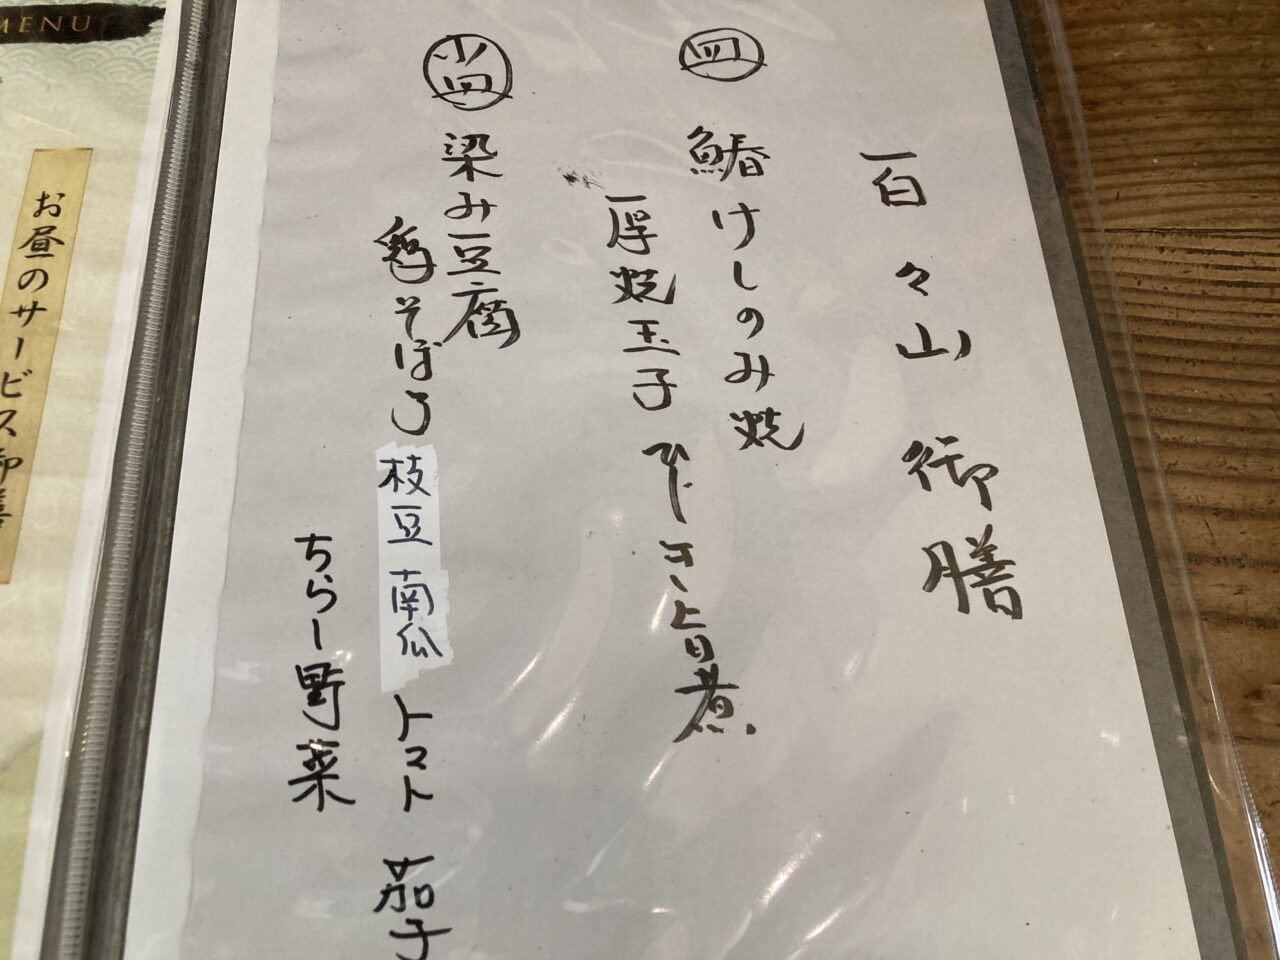 百々山御膳
皿
鰆けしのみ焼
厚焼玉子 ひじき上旨煮
小皿
染み豆腐
鶏そぼろ 枝豆 南瓜 トマト 茄子
ちらし野菜
MENU
お昼のサービス御膳